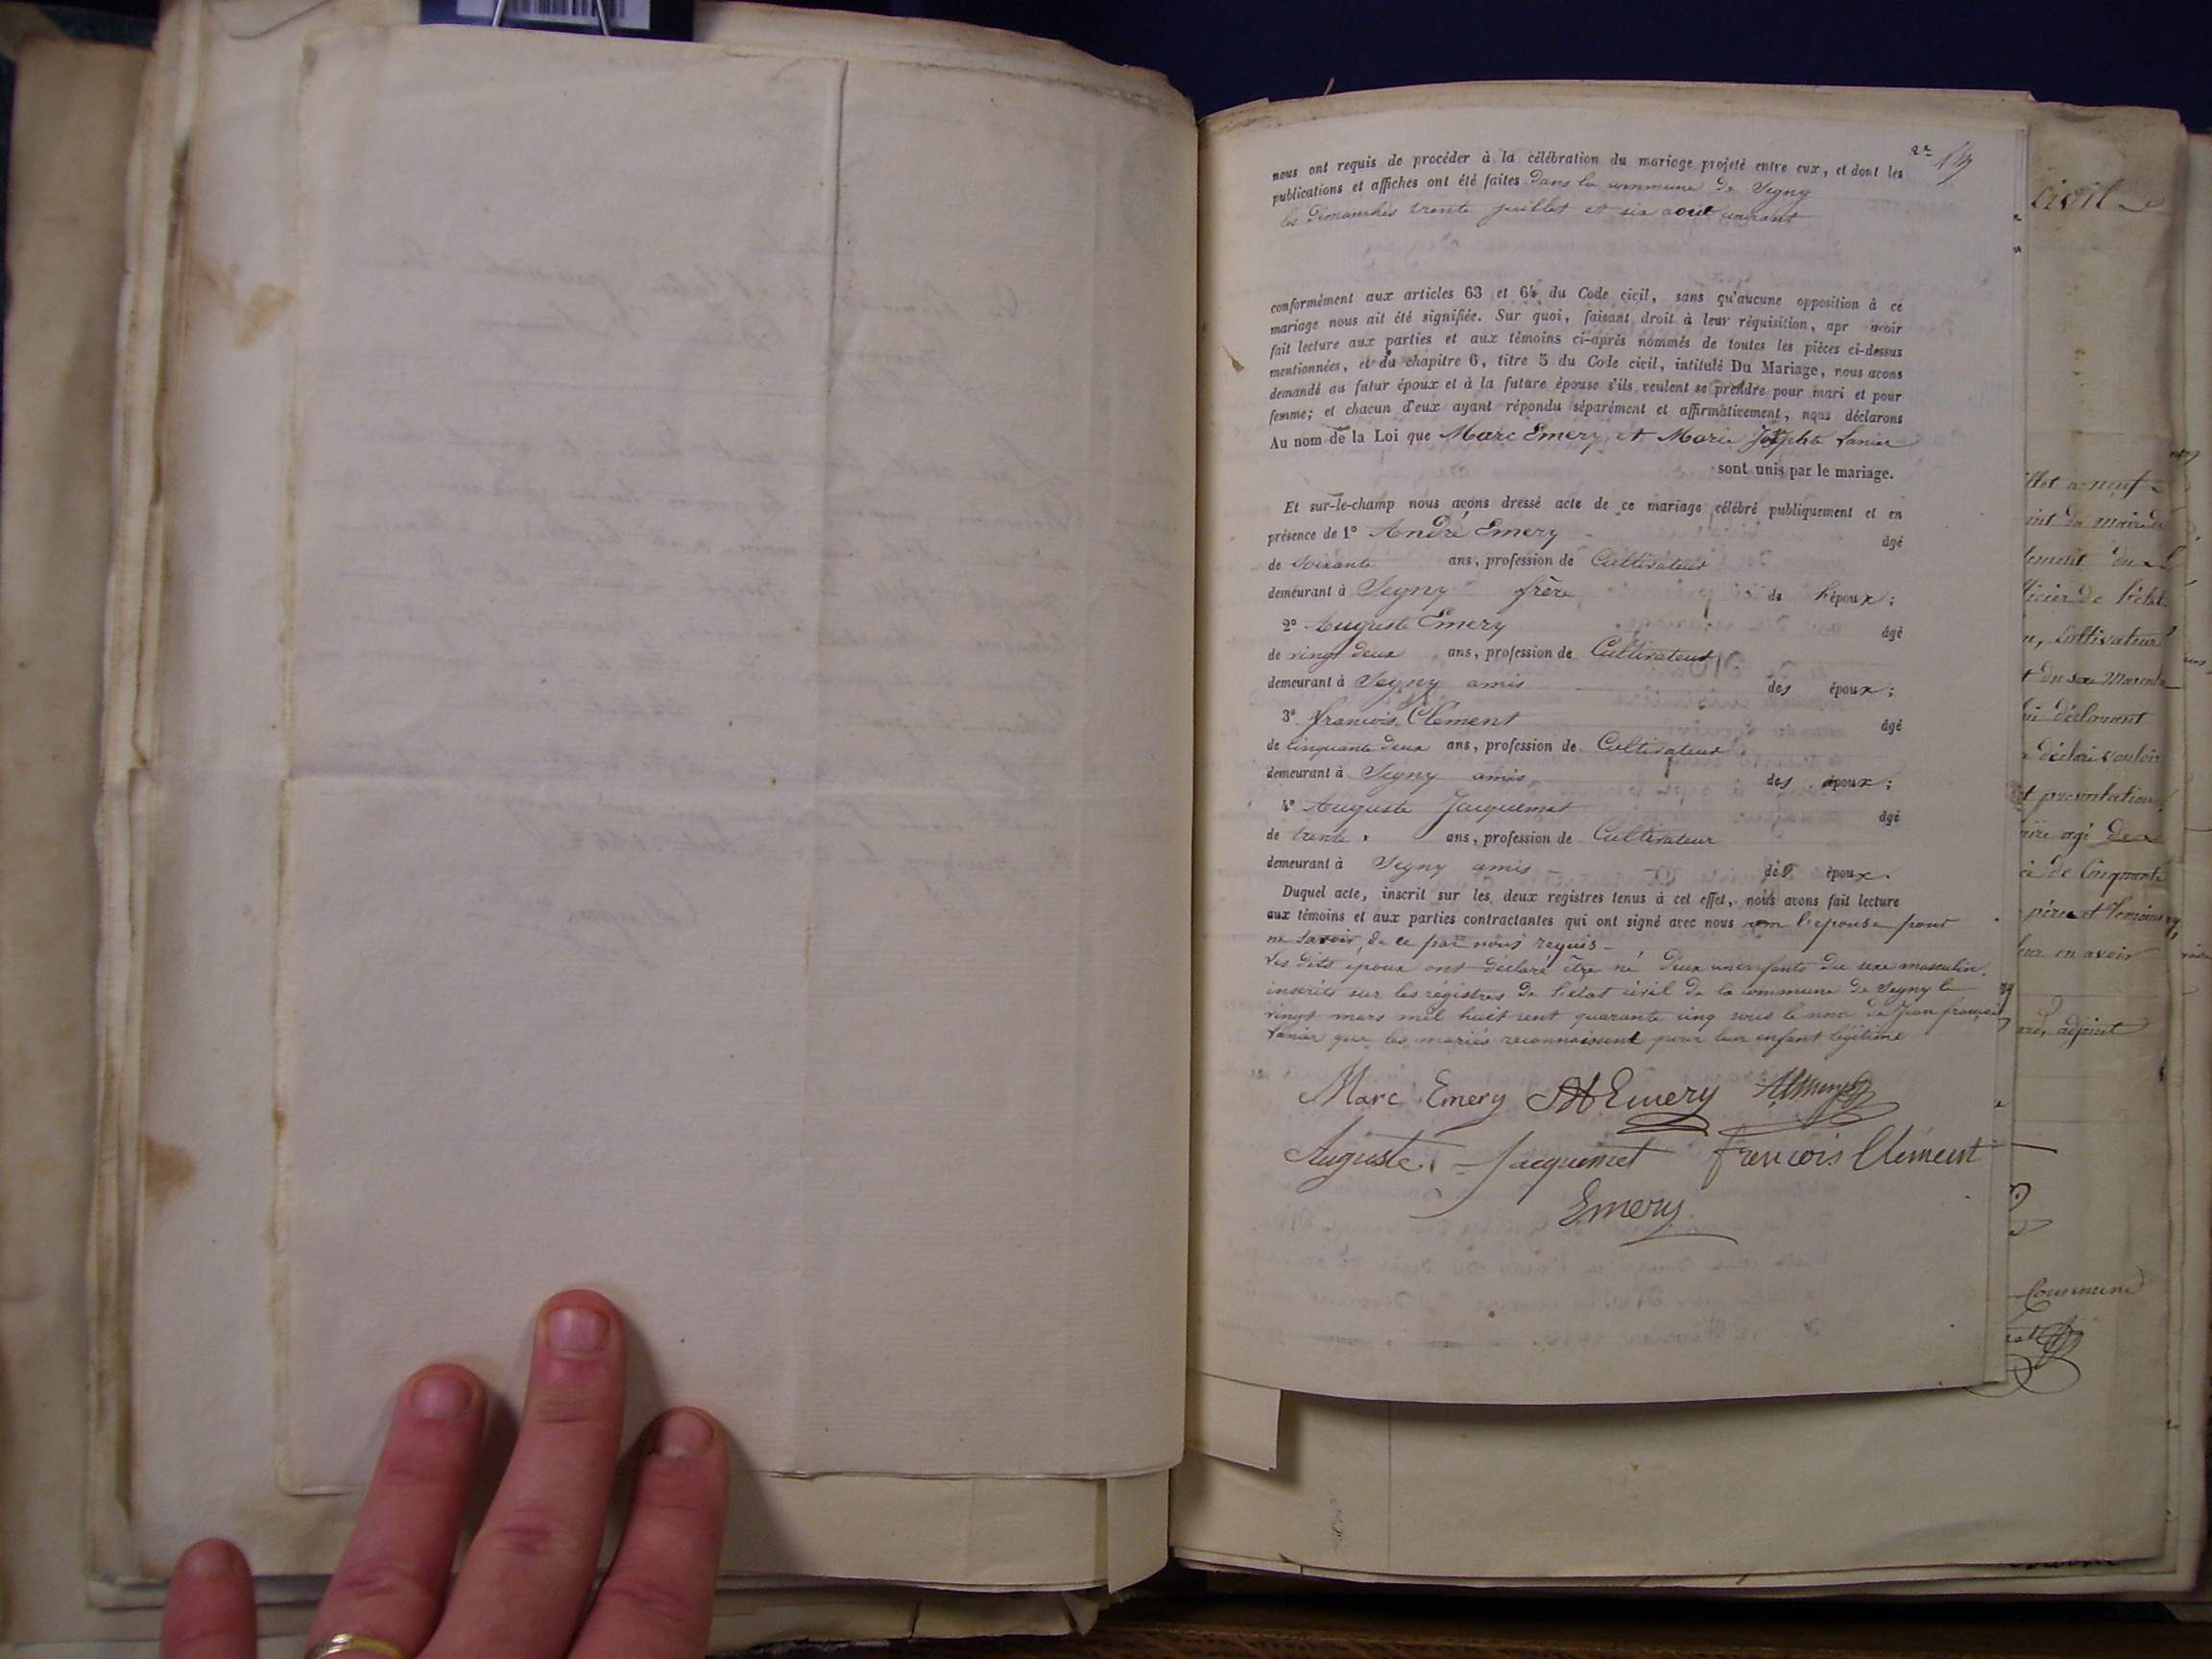 nous ont requis de procéder à la célébration du mariage projeté entre eux, et dont les
publications et affiches ont été faites dans la commune de Segny
les dimanches trente juillet et six aout courant
conformément aux articles 63 et 64 du Code civil, sans qu'aucune opposition à ce
mariage nous ait été signifiée. Sur quoi, faisant droit à leur réquisition, apr avoir
fait lecture aux parties et aux témoins ci-après nommés de toutes les pièces ci-dessus
mentionnées, et du chapitre 6, titre 5 du Code civil, intitulé Du Mariage, nous avons
demandé au futur époux et à la future épouse s'ils veulent se prendre pour mari et pour
femme; et chacun d'eux ayant répondu séparément et affirmativement, nous déclarons
Au nom de la Loi que Marc Emery, et Marie Josephte Lanier
sont unis par le mariage.
Et sur-le-champ nous avons dressé acte de ce mariage célébré publiquement et en
présence de 1° André Emery âgé
de soixante ans, profession de Cultivateur
demeurant à Segny frère de l'époux;
2° Auguste Emery âgé
de vingt deux ans, profession de Cultivateur
demeurant à Segny amis des époux;
3° françois Clément âgé
de cinquante deux ans, profession de Cultivateur
demeurant à Segny amis des époux;
4° Auguste Jacquemet âgé
de trente ans, profession de Cultivateur
demeurant à Segny amis des époux.
Duquel acte, inscrit sur les deux registres tenus à cet effet, nous avons fait lecture
aux témoins et aux parties contractantes qui ont signé avec nous non l'épouse pour
ne savoir, de ce par nous requis
Les dits époux ont déclaré être né deux un enfants du sexe masculin
inscrits sur les régistres de l'état civil de la commune de Segny le
vingt mars mil huit cent quarante cinq sous le nom de Jean françois
Lanier que les mariés reconnaissent pour leur enfant légitime
Marc Emery Emery
Auguste Jacquemet francois Clément
Emery
civil
et à neuf
Cultivateur
déclarant
présentation
âgé de
de Cinquante
père et témoins
en avoir
adjoint
Commune